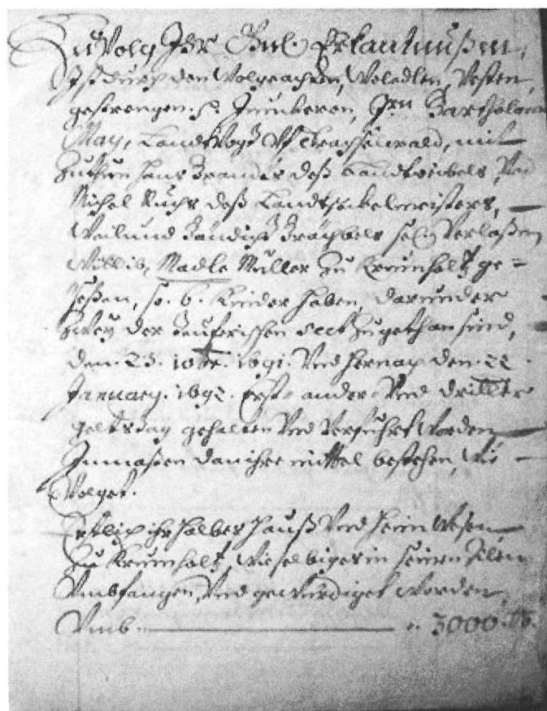 Zu Volg Ihr Gnl. Erkantnußen,
Ist durch den Wolgeachten, Woledlen, Vesten,
gestrengen. H. Junkeren, Jrn Bartholome
May, Landtvogt Uf Trachselwald, mit
Zuthun Hans des Landtweibels, Und
Michel Ruchs deß Landtseckelmeisters,
Weilund sel. Verlaßen
Wittib, Madle Müller zu Kreunholtz ge=
seßen, so. 6. Kinder haben, darunder
Zwey der teüferischen Sect zugethan sind,
den. 23. 10br. 1691. Und hernach den. 22
January. 1692. Erst- ander- Und dritter
geltstag gehalten Und Verführt Worden
Jnmaßen dan ihre mittel bestehen, Wie
Volget.
Erstlich ihr halbes Hauß Und heim Wesen
zu Kreunholtz, Wie selbiges in seinen Zilen
Umbfangen, Und gewürdiget Worden,
Umb. 3000. lb.